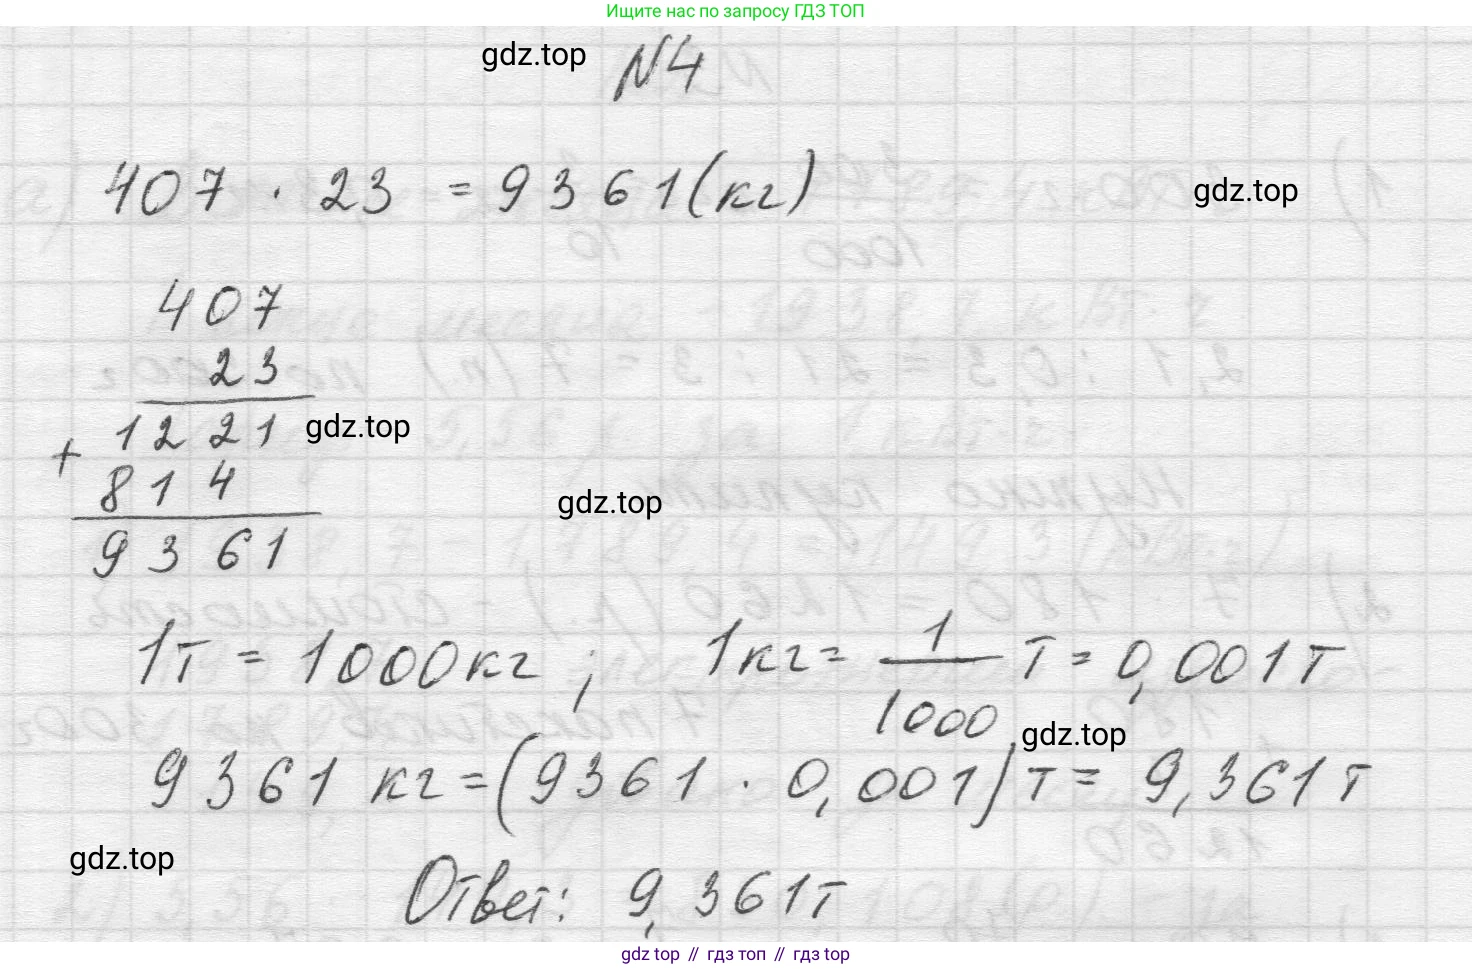 Ищите нас по запросу ГДЗ ТОП
gdz.top
N4
407 · 23 = 9361 (кг)
gdz.top
407
23
1221
gdz.top
+
814
gdz.top
9361
1т = 1000кг ; 1кг = 1/1000 т = 0,001т
gdz.top
9361 кг = (9361 · 0,001) т = 9,361 т
gdz.top
Ответ: 9,361т
gdz.top // гдз топ // gdz top